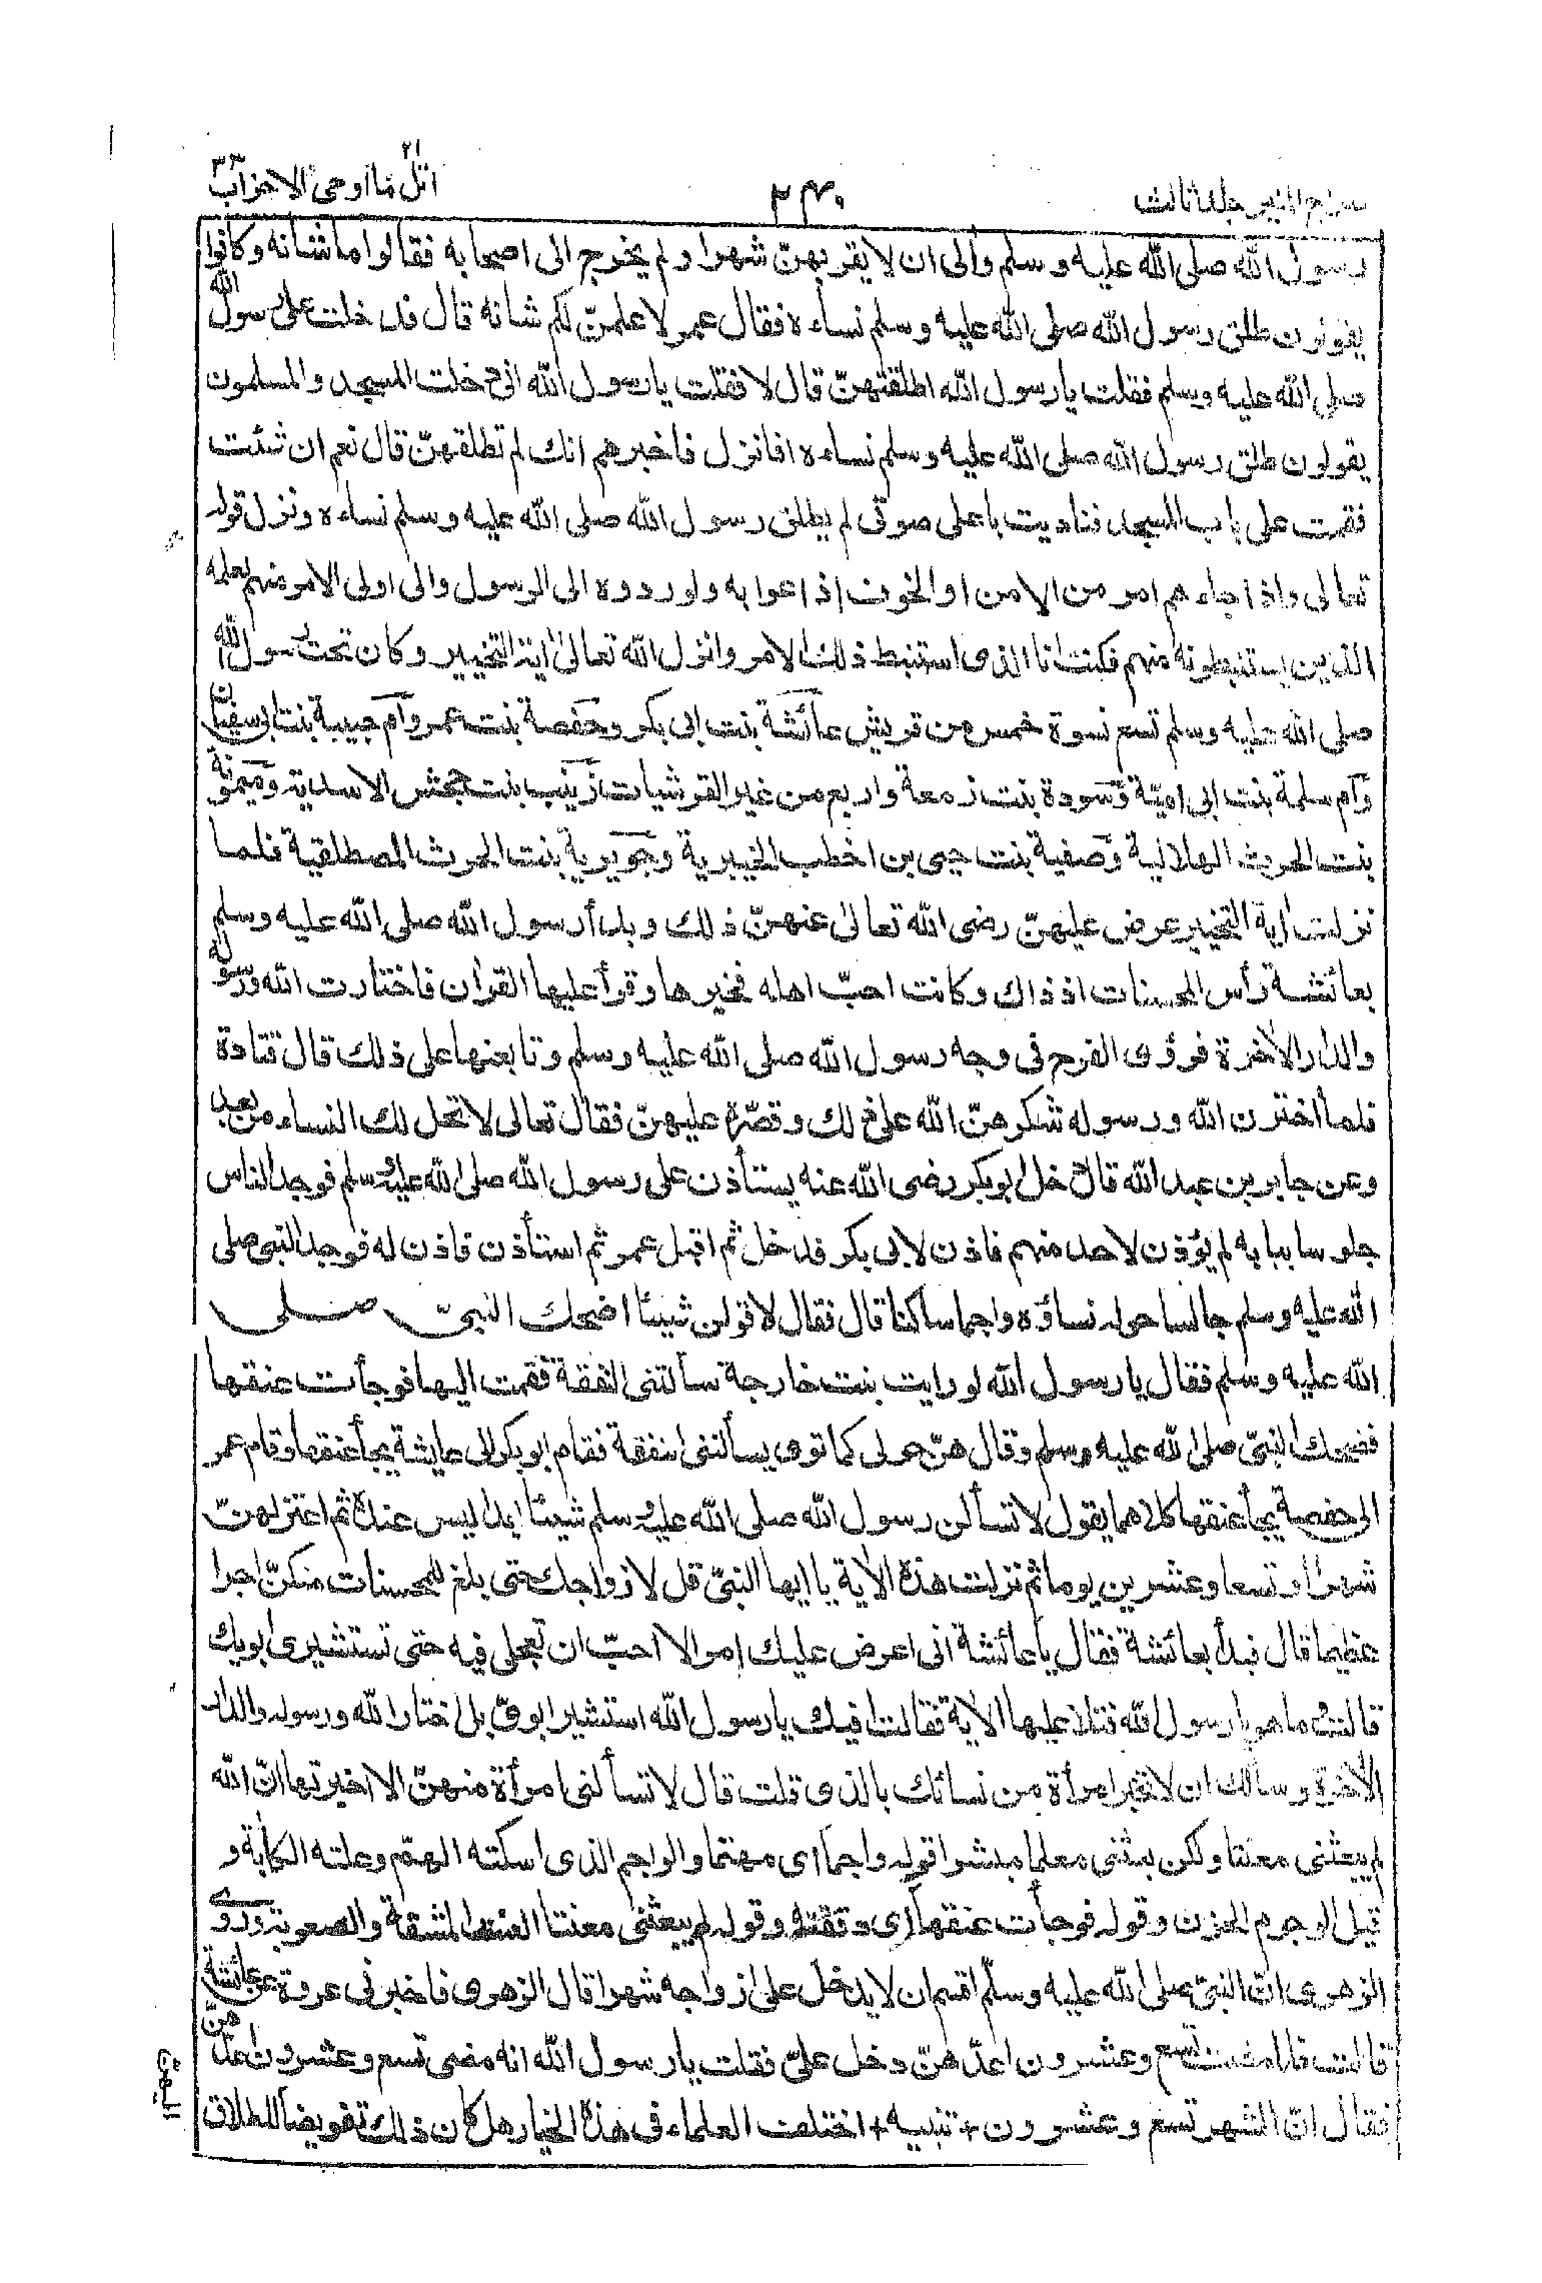 سراج المنير جلد ثالث
٢٤٠
اتل ما اوحى ٢١ الاحزاب ٣٣
رسول الله صلى الله عليه وسلم وألى ان لا يقربهنّ شهرا ولم يخرج الى اصحابه فقالوا ما شانه وكانوا
يقولون طلق رسول الله صلى الله عليه وسلم نساءه فقال عمر لاعلمنّ لكم شانه قال فدخلت على رسول الله
صلى الله عليه وسلم فقلت يا رسول الله اطلقتهنّ قال لا فقلت يا رسول الله انى دخلت المسجد والمسلمون
يقولون طلق رسول الله صلى الله عليه وسلم نساءه افانزل فاخبرهم انك لم تطلقهنّ قال نعم ان شئت
فقمت على باب المسجد فناديت باعلى صوتى لم يطلق رسول الله صلى الله عليه وسلم نساءه ونزل قوله
تعالى واذا جاءهم امر من الامن او الخوف اذاعوا به ولو ردوه الى الرسول والى اولى الامر منهم لعلمه
الذين يستنبطونه منهم فكنت انا الذى استنبط ذلك الامر وانزل الله تعالى أية التخيير وكان تحت رسول الله
صلى الله عليه وسلم تسع نسوة خمس من قريش عائشة بنت ابى بكر وحفصة بنت عمر وام حبيبة بنت ابى سفيان
وام سلمة بنت ابى اميّة وسودة بنت زمعة واربع من غير القرشيات زينب بنت جحش الاسدية وميمونة
بنت الحرث الهلالية وصفية بنت حيى بن اخطب الخيبرية وجويرية بنت الحرث المصطلقية فلما
نزلت أية التخيير عرض عليهنّ رضى الله تعالى عنهنّ ذلك وبدأ رسول الله صلى الله عليه وسلم
بعائشة رأس المحسنات اذ ذاك وكانت احبّ اهله فخيرها وقرأ عليها القرأن فاختارت الله ورسوله
والدار الأخرة فرؤى الفرح فى وجه رسول الله صلى الله عليه وسلم وتابعنها على ذلك قال قتادة
فلما اخترن الله ورسوله شكرهنّ الله على ذلك وقصّره عليهنّ فقال تعالى لا تحل لك النساء من بعد
وعن جابر بن عبد الله قال دخل ابو بكر رضى الله عنه يستأذن على رسول الله صلى الله عليه وسلم فوجد الناس
جلوسا ببابه لم يؤذن لاحد منهم فاذن لابى بكر فدخل ثم اقبل عمر ثم استأذن فاذن له فوجد النبى صلى
الله عليه وسلم جالسا حوله نساؤه واجما ساكتا قال فقال لاقولن شيئا اضحك النبىّ صلى
الله عليه وسلم فقال يا رسول الله لو رايت بنت خارجة سألتنى النفقة فقمت اليها فوجأت عنقها
فضحك النبىّ صلى الله عليه وسلم وقال هنّ حولى كما ترى يسألننى النفقة فقام ابو بكر الى عايشة يجأ عنقها وقام عمر
الى حفصة يجأ عنقها كلاهما يقول لا تسألن رسول الله صلى الله عليه وسلم شيئا ابدا ليس عنده ثم اعتزلهنّ
شهرا او تسعا وعشرين يوما ثم نزلت هذه الأية يا ايها النبىّ قل لازواجك حتى بلغ للمحسنات منكنّ اجرا
عظيما قال فبدأ بعائشة فقال يا عائشة انى اعرض عليك امرا لا احبّ ان تعجلى فيه حتى تستشيرى ابويك
قالت وما هو يا رسول الله فتلا عليها الأية فقالت افيك يا رسول الله استشير ابوىّ بل اختار الله ورسوله والدار
الأخرة وسألك ان لا تخبر امرأة من نسائك بالذى قلت قال لا تسألنى امرأة منهنّ الا اخبرتها انّ الله
لم يبعثنى معنتا ولكن بعثنى معلما مبشرا قوله واجما اى مهتما والواجم الذى اسكته الهمّ وعلته الكأبة و
قيل الوجوم الحزن وقوله فوجأت عنقها اى دققته وقوله لم يبعثنى معنتا العنت المشقة والصعوبة وروى
الزهرى انّ النبىّ صلى الله عليه وسلّم اقسم ان لا يدخل على ازواجه شهرا قال الزهرى فاخبرنى عروة عن عائشة
قالت فلما مضت تسع وعشرون اعدّهنّ دخل علىّ فقلت يا رسول الله انه مضى تسع وعشرون اعدّهنّ
فقال انّ الشهر تسع وعشرون + تنبيه + اختلف العلماء فى هذا الخيار هل كان ذلك تفويضا للطلاق